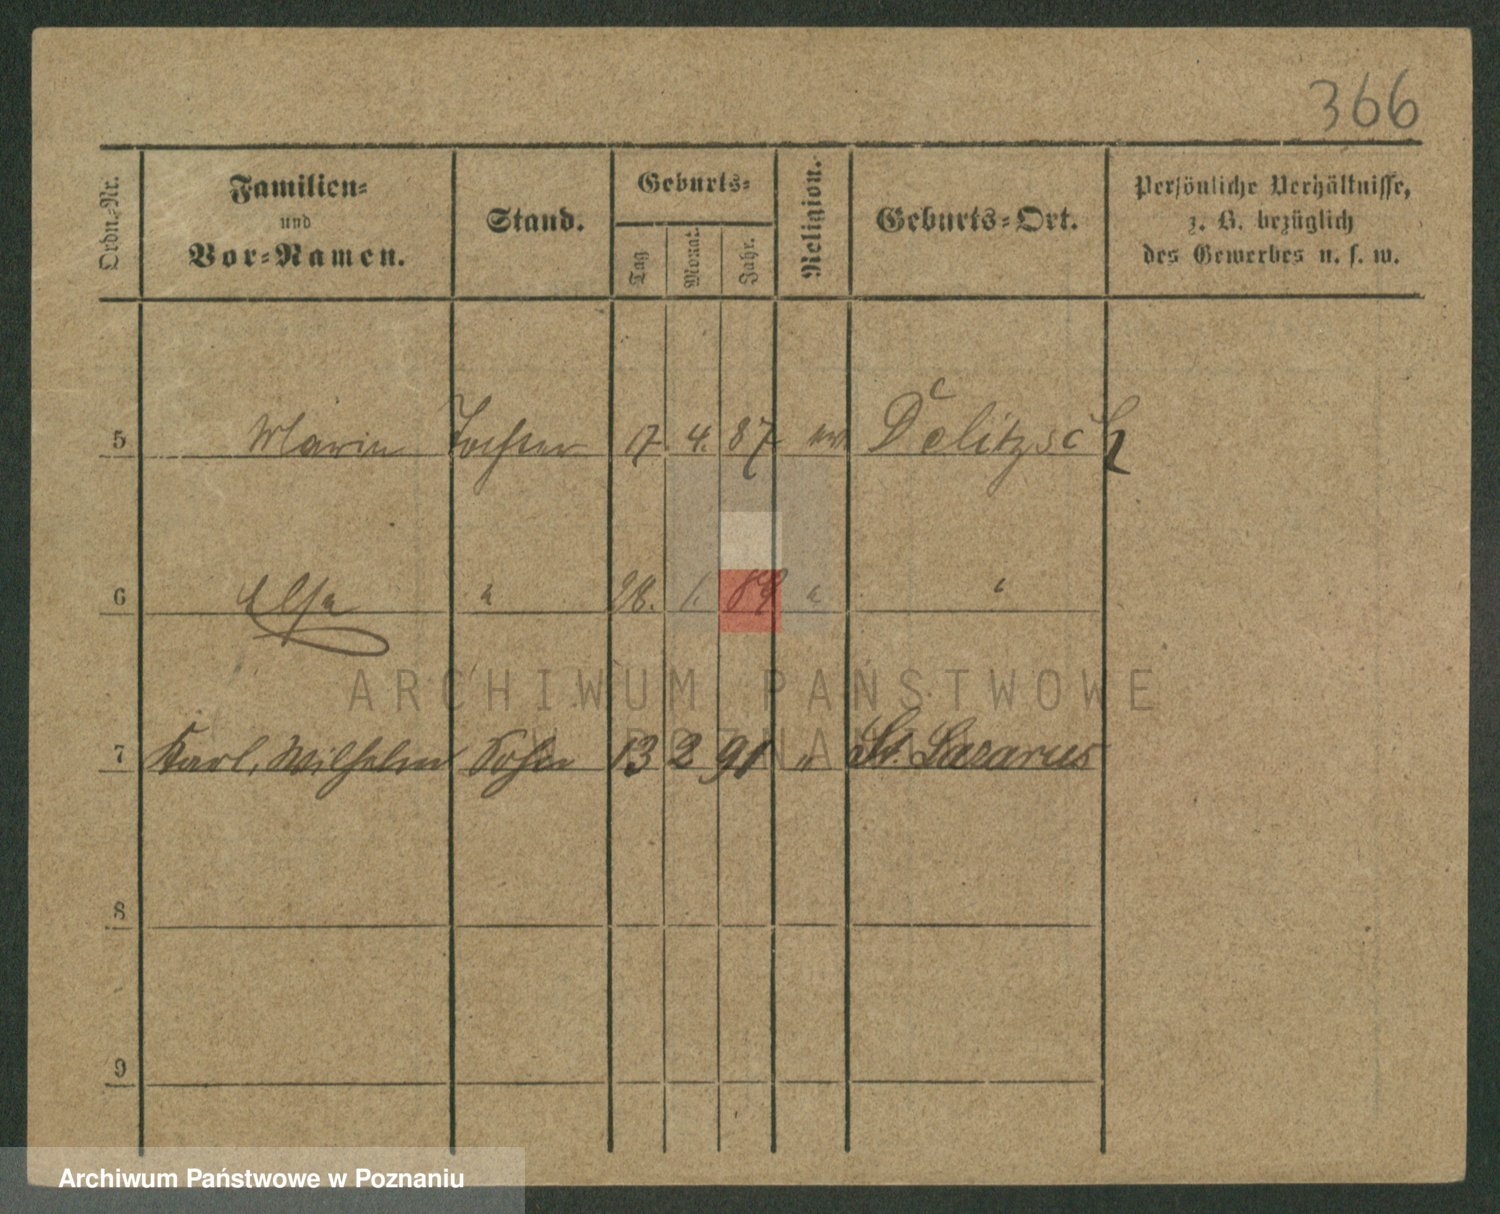 366
Ordn.-Nr. Familien- und Vor-Namen. Stand. Geburts- Tag Monat. Jahr. Religion. Geburts-Ort. Persönliche Verhältnisse, z. B. bezüglich des Gewerbes u. s. w.
5 Marie Tochter 7. 4. 87 ev. Delitzsch
6 Elsa " 28. 1. 89 " "
7 Karl, Wilhelm Sohn 13 2 91 " St. Lazarus
8
9
ARCHIWUM PAŃSTWOWE
W POZNANIU
Archiwum Państwowe w Poznaniu